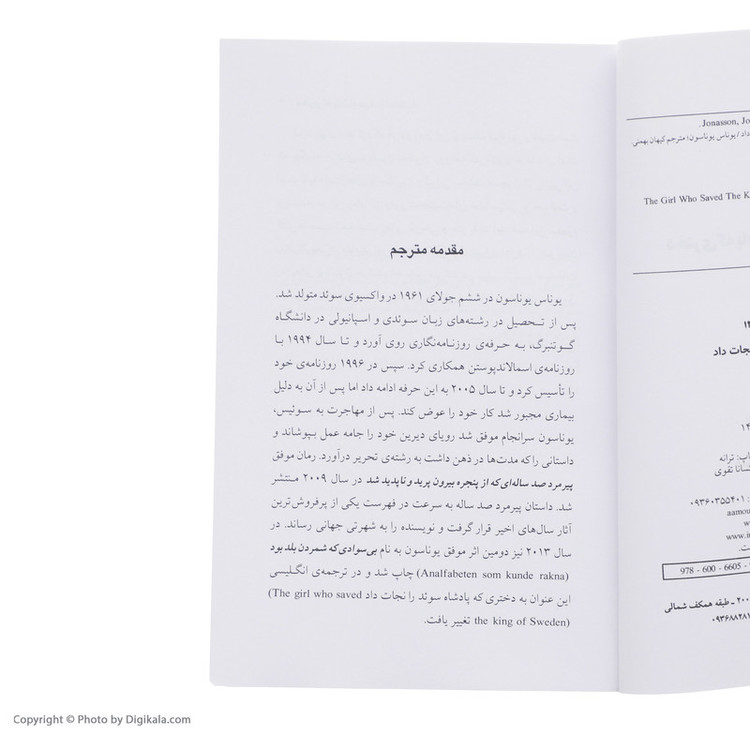 مقدمه مترجم
یوناس یوناسون در ششم جولای ۱۹۶۱ در واکسیوی سوئد متولد شد.
پس از تـحصیل در رشته‌های زبان سوئدی و اسپانیولی در دانشگاه
گـوتنبرگ، بـه حـرفه‌ی روزنـامه‌نگاری روی آورد و تـا سـال ۱۹۹۴ بـا
روزنامه‌ی اسمالاندپوستن همکاری کرد. سپس در ۱۹۹۶ روزنامه‌ی خود
را تأسیس کرد و تا سال ۲۰۰۵ به این حرفه ادامه داد اما پس از آن به دلیل
بیماری مجبور شد کار خود را عوض کند. پس از مهاجرت به سـوئیس،
یوناسون سرانجام موفق شد رویای دیرین خود را جامه عمل بـپوشاند و
داستانی را که مدت‌ها در ذهن داشت به رشته‌ی تحریر درآورد. رمان موفق
پیرمرد صد ساله‌ای که از پنجره بیرون پرید و ناپدید شد در سال ۲۰۰۹ مـنتشر
شد. داستان پیرمرد صد ساله به سرعت در فهرست یکی از پرفروش‌ترین
آثار سال‌های اخیر قرار گرفت و نویسنده را به شهرتی جهانی رساند. در
سال ۲۰۱۳ نیز دومین اثر موفق یوناسون به نام بی‌سوادی که شمردن بلد بود
(Analfabeten som kunde rakna) چاپ شد و در ترجمه‌ی انگلیسی
این عنوان به دختری که پادشاه سوئد را نجات داد (The girl who saved
the king of Sweden) تغییر یافت.
Jonasson, Jo
داد / یوناس یوناسون؛ مترجم کیهان بهمنی
The Girl Who Saved The K
نجات داد
چاپ: ترانه
تقوی
۰۹۳۶۰۳۵۵۴۰۱
aamou
www.i
978 - 600 - 6605 -
۲۰۰ ـ طبقه همکف شمالی
۰۹۳۶۸۸۲۸۱
Copyright © Photo by Digikala.com